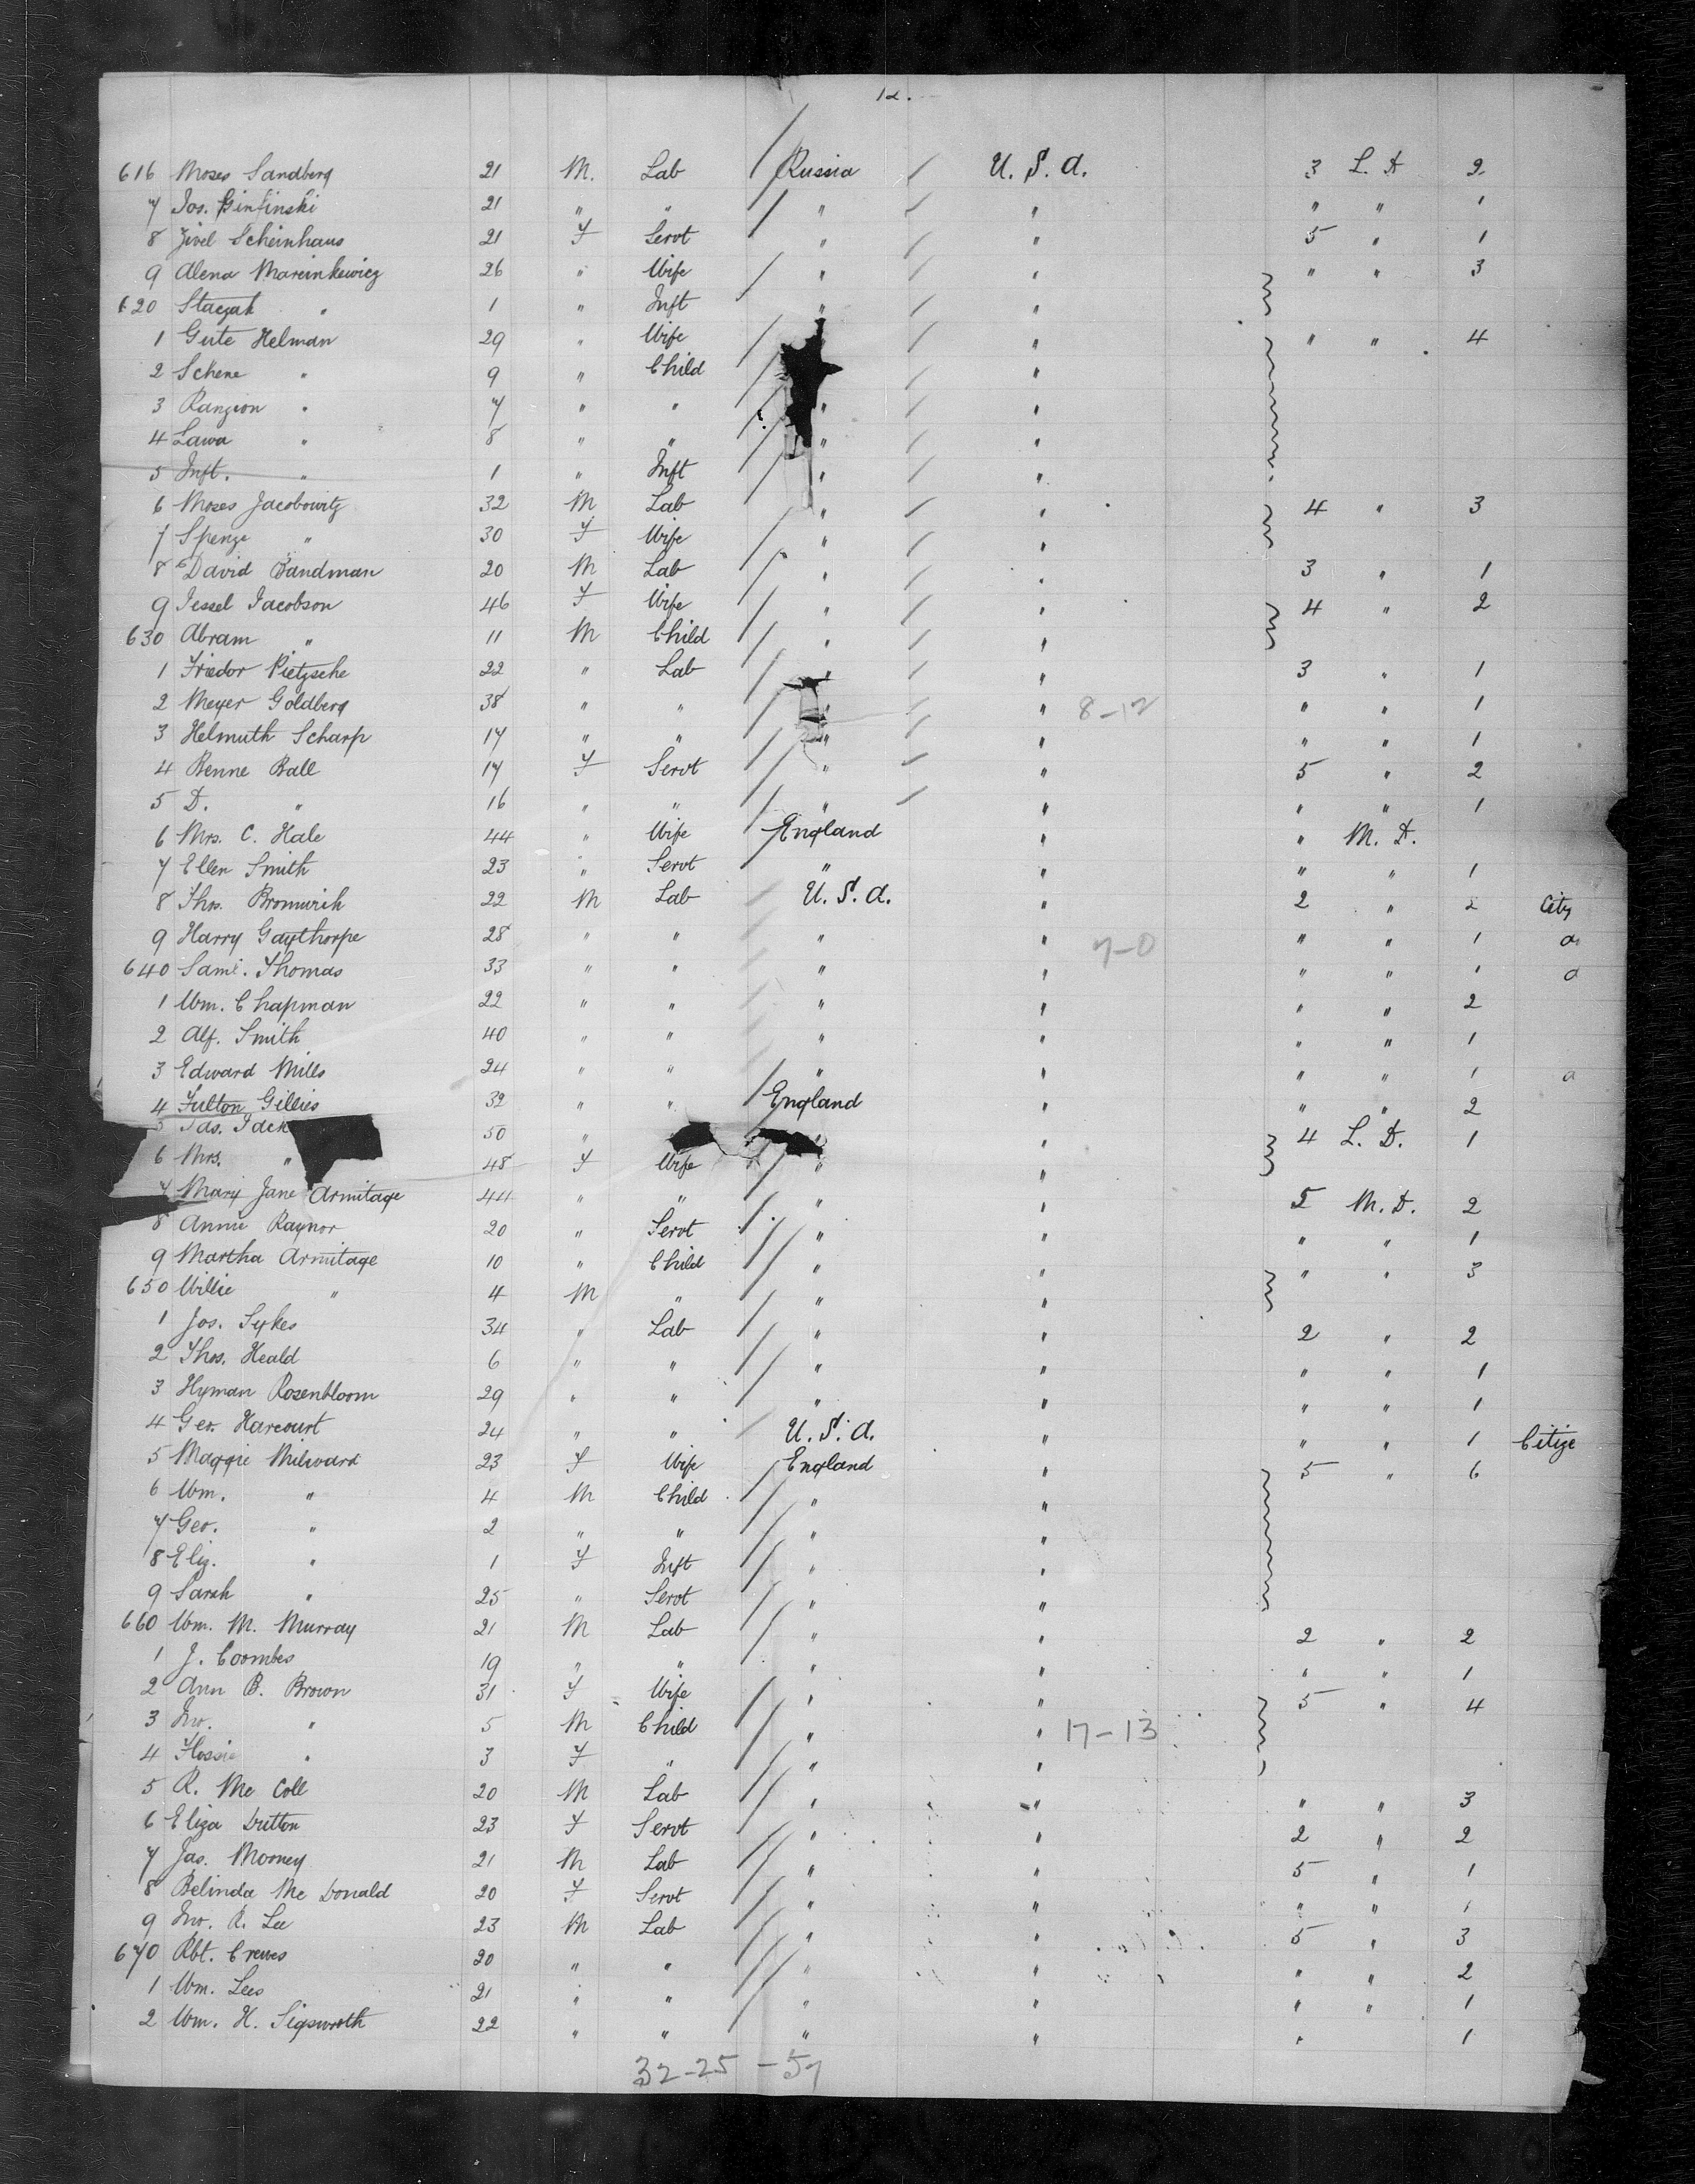 12.
616 Moses Sandberg 21 M. Lab Russia U. S. A. 3 L. D 2
7 Jos. Ginfinski 21 " " " " " " 1
8 Zivel Scheinhaus 21 F Servt " " 5 " 1
9 Alena Mareinkewicz 26 " Wife " " " " 3
620 " 1 " Inft " "
1 Gute Helman 29 " Wife " " " 4
2 Schene " 9 " Child "
3 Rangion " 7 " " " "
4 Lawa " 8 " " " "
5 Inft. " 1 " Inft " "
6 Moses Jacobowitz 32 M Lab " " 4 " 3
7 Spenze " 30 F Wife " "
8 David Bandman 20 M Lab " " 3 " 1
9 Jessel Jacobson 46 F Wife " " 4 " 2
630 Abram " 11 M Child " "
1 Friedor Pietzsche 22 " Lab " " 3 " 1
2 Meyer Goldberg 38 " " " " 8-12 " " 1
3 Helmuth Scharp 17 " " " " " " 1
4 Benne Ball 17 F Servt " " 5 " 2
5 D. " 16 " " " " " " 1
6 Mrs. C. Hale 44 " Wife England " " M. D.
7 Ellen Smith 23 " Servt " " " " 1
8 Thos. Bromwich 22 M Lab U. S. A. " 2 " 2
9 Harry Gaythorpe 28 " " " " 7-0 " " 1
640 Saml. Thomas 33 " " " " " " 1
1 Wm. Chapman 22 " " " " " " 2
2 Alf. Smith 40 " " " " " " 1
3 Edward Mills 24 " " " " " " 1
4 Fulton Gillies 32 " " England " " " 2
5 50 " " " 4 L. D. 1
6 Mrs. " 48 F Wife " "
7 Mary Jane Armitage 44 " " " " 5 M. D. 2
8 Annie Raynor 20 " Servt " " " " 1
9 Martha Armitage 10 " Child " " " " 3
650 Willie " 4 M " " "
1 Jos. Sykes 34 " Lab " " 2 " 2
2 Thos. Heald 6 " " " " " " 1
3 Hyman Rosenbloom 29 " " " " " " 1
4 Geo. Harcourt 24 " " U. S. A. " " " 1 Citize
5 Maggie Milward 23 F Wife England " 5 " 6
6 Wm. " 4 M Child " "
7 Geo. " 2 " " " "
8 Eliz. " 1 F Inft " "
9 Sarah " 25 " Servt " "
660 Wm. M. Murray 21 M Lab " " 2 " 2
1 J. Coombes 19 " " " " " " 1
2 Ann B. Brown 31 F Wife " " 5 " 4
3 Jno. " 5 M Child " " 17-13
4 Flossie " 3 F " " "
5 R. Mc Coll 20 M Lab " " " " 3
6 Eliza Dutton 23 F Servt " " 2 " 2
7 Jas. Mooney 21 M Lab " " 5 " 1
8 Belinda Mc Donald 20 F Servt " " " " 1
9 Jno. R. Lee 23 M Lab " " 5 " 3
670 Rbt. Crewes 20 " " " " " " 2
1 Wm. Lees 21 " " " " " " 1
2 Wm. H. Sigsworth 22 " " " " " 1
32-25-57